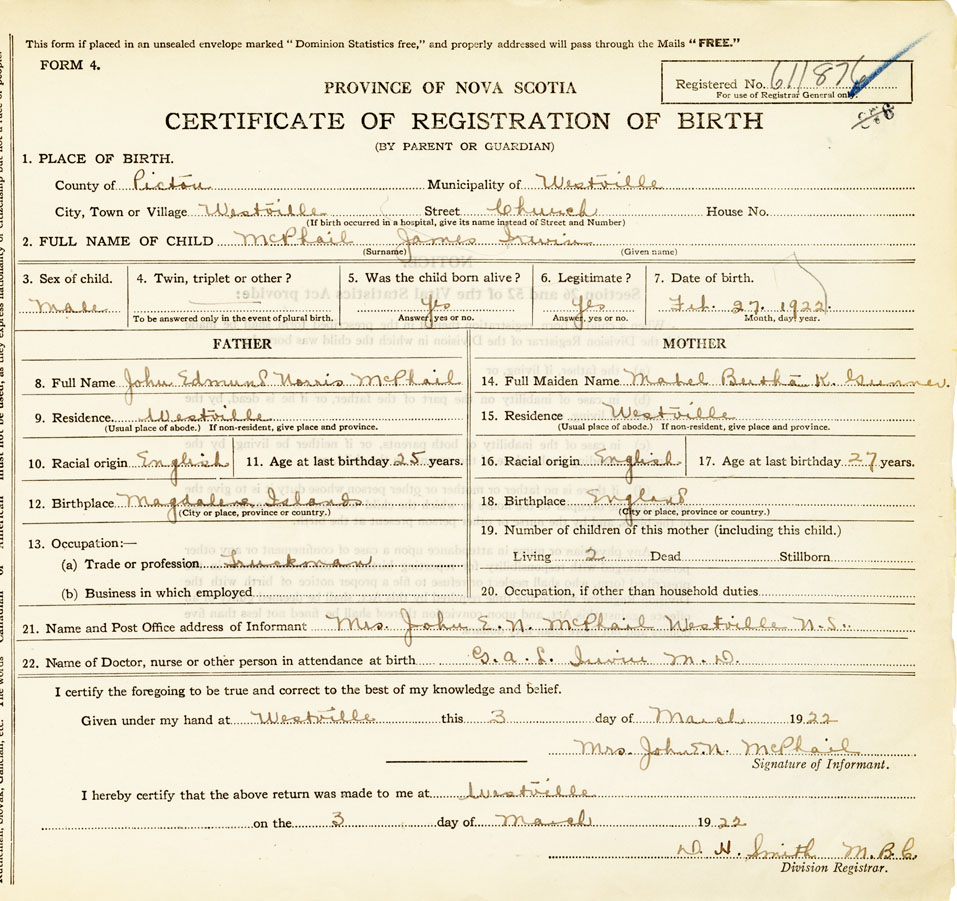 This form if placed in an unsealed envelope marked "Dominion Statistics free," and properly addressed will pass through the Mails "FREE."
FORM 4.
Registered No. 611876
For use of Registrar General only.
PROVINCE OF NOVA SCOTIA
CERTIFICATE OF REGISTRATION OF BIRTH
(BY PARENT OR GUARDIAN)
1. PLACE OF BIRTH.
County of Pictou Municipality of Westville
City, Town or Village Westville Street Church House No.
(If birth occurred in a hospital, give its name instead of Street and Number)
2. FULL NAME OF CHILD McPhail James Irwin
(Surname) (Given name)
3. Sex of child. 4. Twin, triplet or other? 5. Was the child born alive? 6. Legitimate? 7. Date of birth.
Male Yes Yes Feb. 27. 1922
To be answered only in the event of plural birth. Answer, yes or no. Answer, yes or no. Month, day, year.
FATHER MOTHER
8. Full Name John Edmund Norris McPhail 14. Full Maiden Name Mabel Bertha K. Gunner.
9. Residence Westville 15. Residence Westville
(Usual place of abode.) If non-resident, give place and province. (Usual place of abode.) If non-resident, give place and province.
10. Racial origin English 11. Age at last birthday 25 years. 16. Racial origin English 17. Age at last birthday 27 years.
12. Birthplace Magdalene Islands 18. Birthplace England
(City or place, province or country.) (City or place, province or country.)
19. Number of children of this mother (including this child.)
13. Occupation:—
(a) Trade or profession Truckman Living 2 Dead Stillborn
(b) Business in which employed 20. Occupation, if other than household duties
21. Name and Post Office address of Informant Mrs. John E. N. McPhail Westville N.S.
22. Name of Doctor, nurse or other person in attendance at birth G. A. L. Irwin M.D.
I certify the foregoing to be true and correct to the best of my knowledge and belief.
Given under my hand at Westville this 3 day of March 1922
Mrs. John E.N. McPhail
Signature of Informant.
I hereby certify that the above return was made to me at Westville
on the 3 day of March 1922
D. H. Smith M.B.C.
Division Registrar.